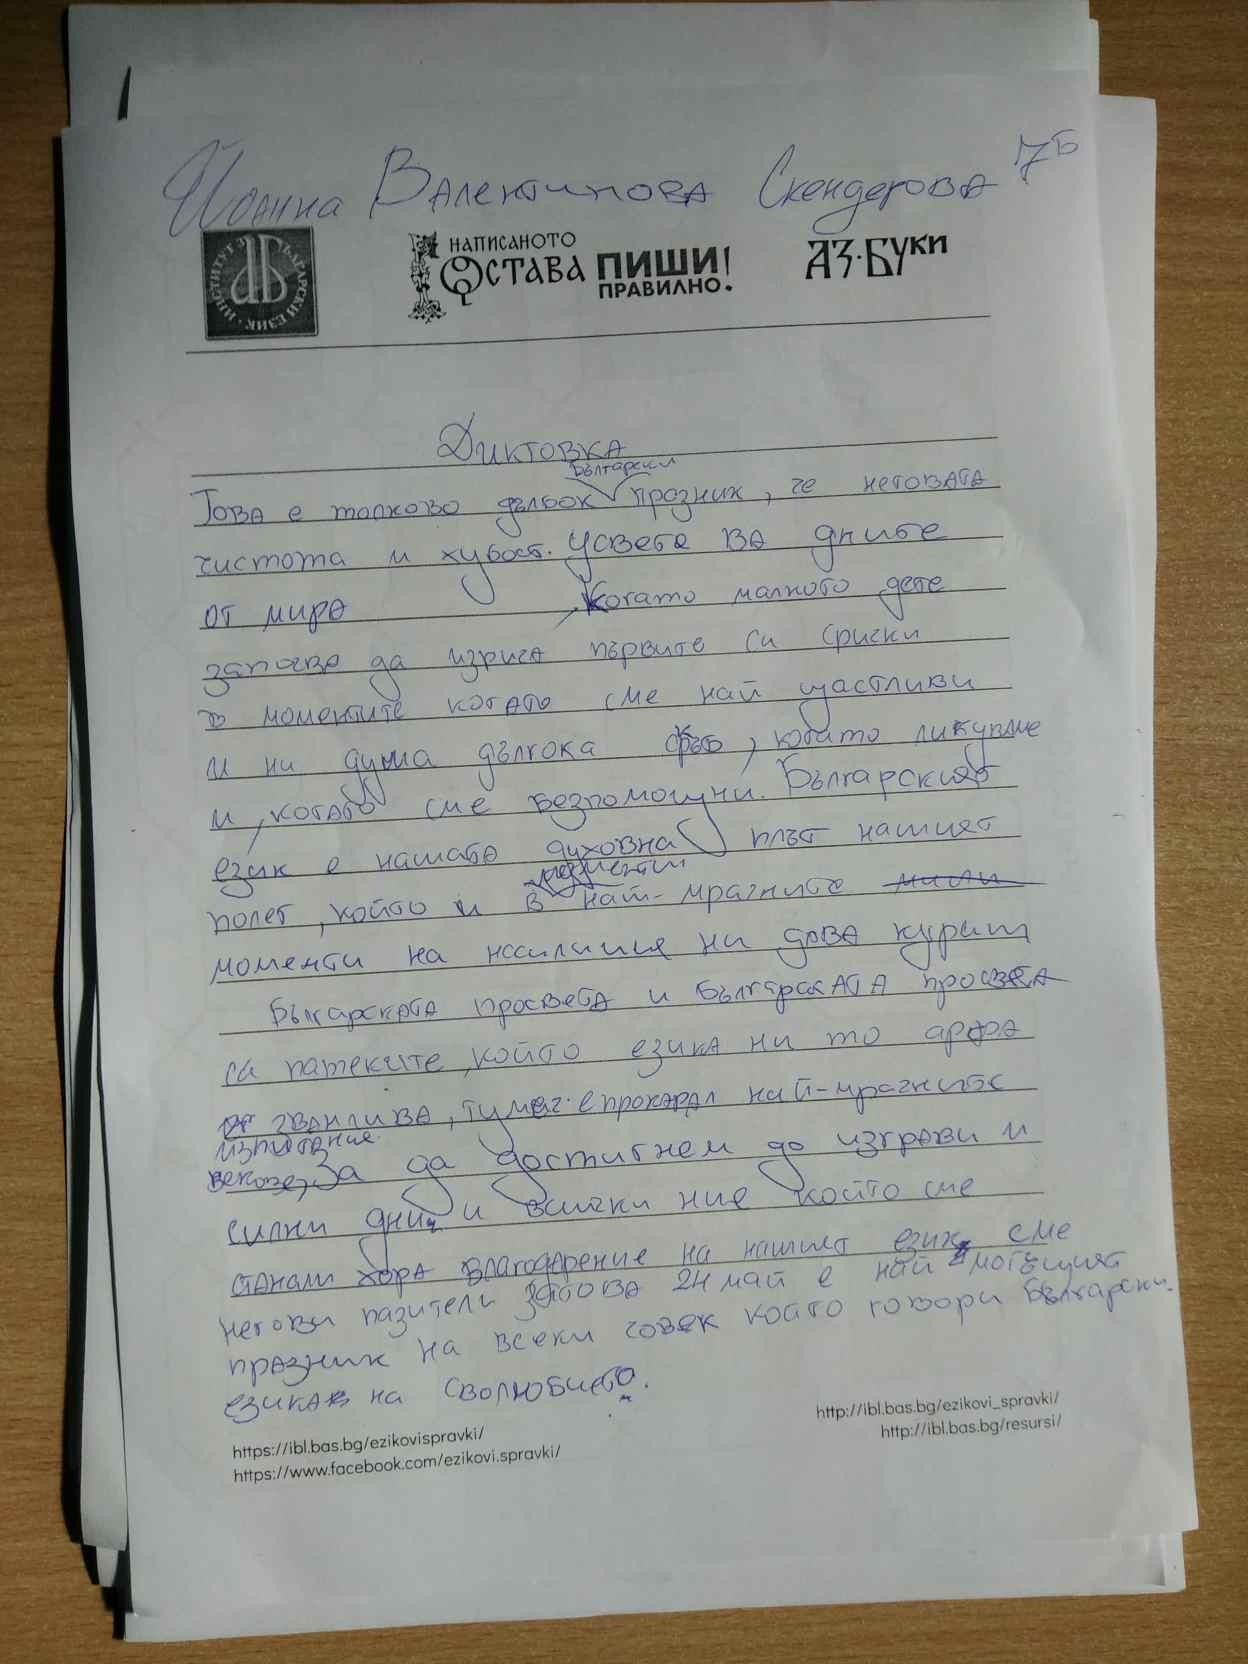 Йоанна Валентинова Скендерова 7Б
ИНСТИТУТ ЗА БЪЛГАРСКИ ЕЗИК
НАПИСАНОТО ОСТАВА ПИШИ ПРАВИЛНО! АЗ·БУКИ
Диктовка
български
Това е толкова дълбок празник, че неговата
чистота и хубост. Усвета ва дните
от мира когато малкото дете
започва да изрича първите си срички
в моментите когато сме най щастливи
и ни дума дълтока като, когато ликуваме
и, когато сме безпомощни. Българският
език е нашата духовна плът нашият
моменти
полет, който и в най-мрачните
моменти на насилиия ни дава кураш
Българската просвета и българската просвета
са патеките, който езика ни то арфа
званлива, ту меч· е прокарал най-мрачните
изпитание
векове, За да достигнем до изграви и
силни дни, и всички ние който сме
станали хора благодарение на нашият език сме
негови пазители затова 24 май е най могъщият
празник на всеки човек който говори български.
езика на своlюбието.
https://ibl.bas.bg/ezikovispravki/
https://www.facebook.com/ezikovi.spravki/
http://ibl.bas.bg/ezikovi_spravki/
http://ibl.bas.bg/resursi/